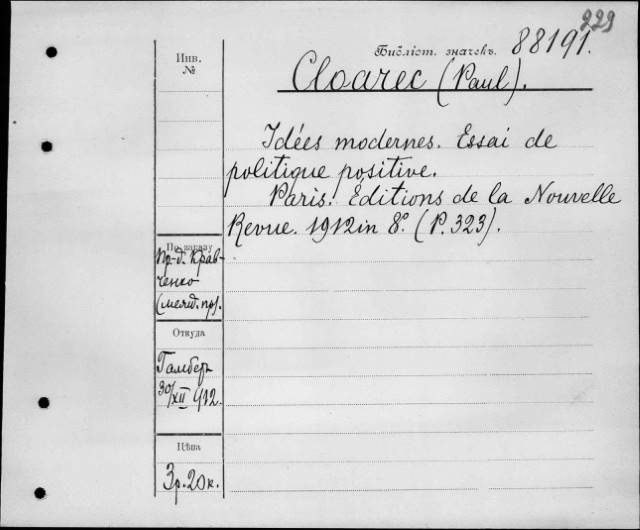 223
Библіот. значекъ. 88191.
Инв.
№
Cloarec (Paul).
Idées modernes. Essai de
politique positive.
Paris. Éditions de la Nouvelle
Revue. 1912 in 8°. (P. 323).
По заказу
Пр-д. Крав-
ченко
(межд. пр).
Откуда
Гамберъ
30/XII 912.
Цѣна
3 р. 20 к.